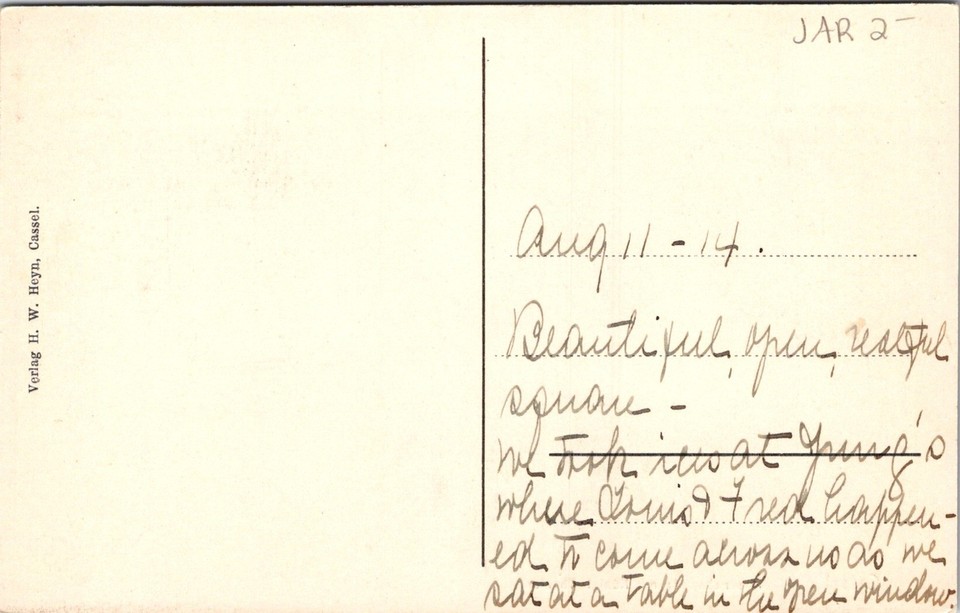 JAR 2-
Verlag H. W. Heyn, Cassel.
Aug 11 - 14.
Beautiful, open, restful
square -
we took ices at Jung's
where Louis & Fred happen-
ed to come across us as we
sat at a table in the open window.